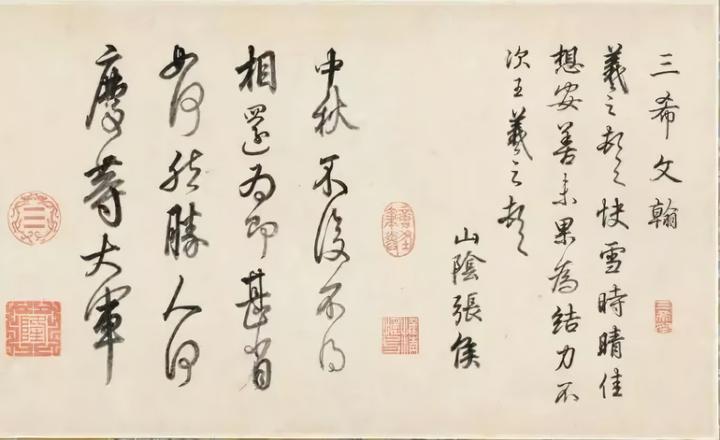 三希文翰
羲之頓首快雪時晴佳
想安善未果為結力不
次王羲之頓首
山陰張侯
中秋不復不得
相還為即甚省
如何然勝人何
慶等大軍